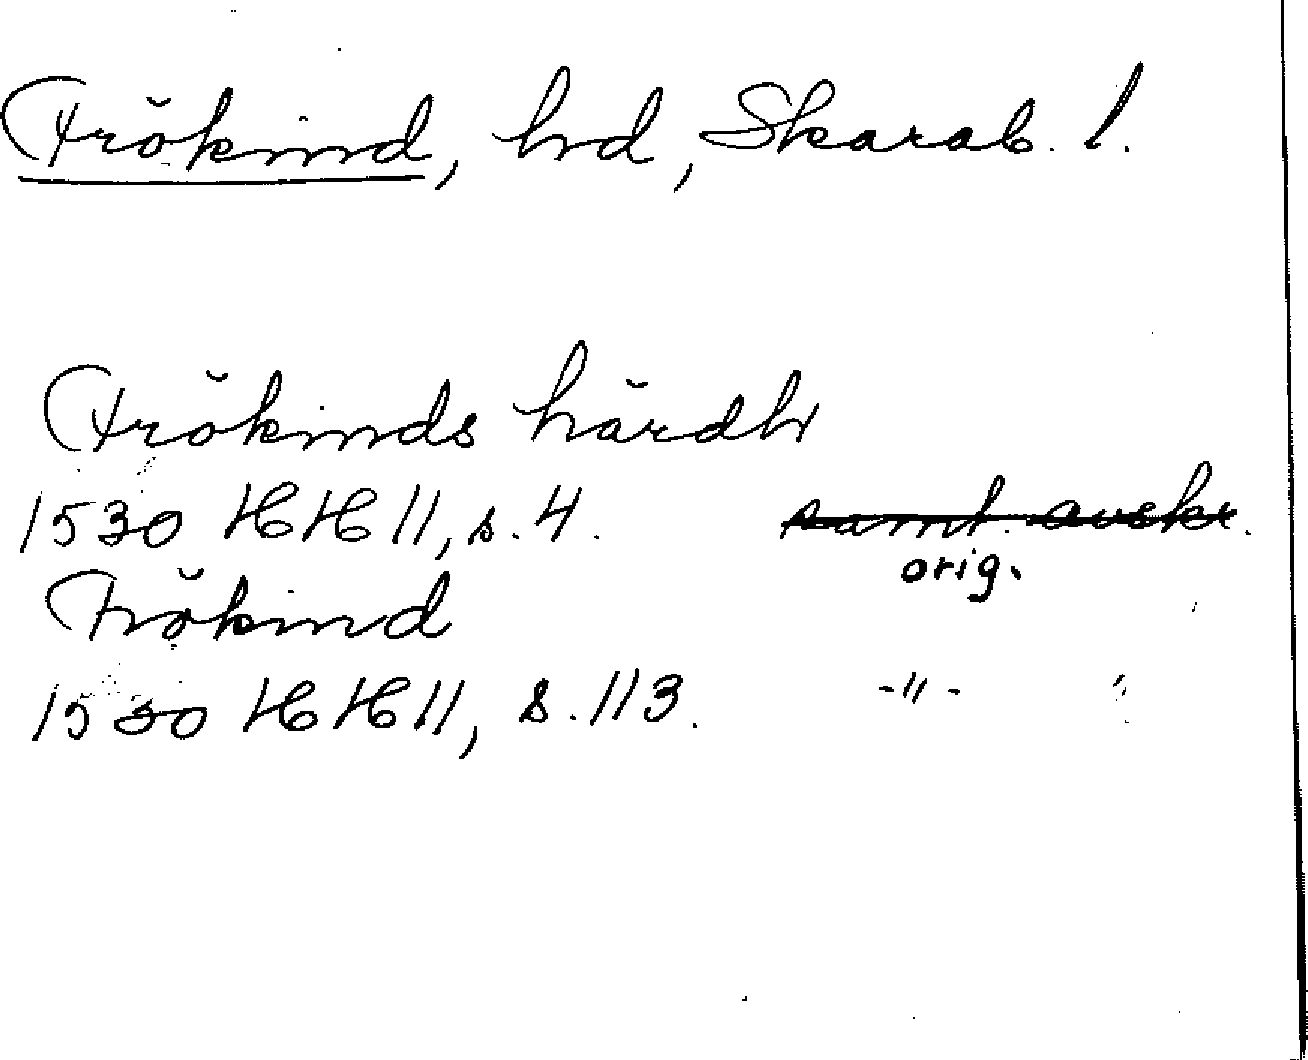 Frökind, hd, Skarab. l.
Frökinds härdh
1530 HH 11, s. 4. samt. avskr.
orig.
Frökind
1530 HH 11, s. 113. -"-